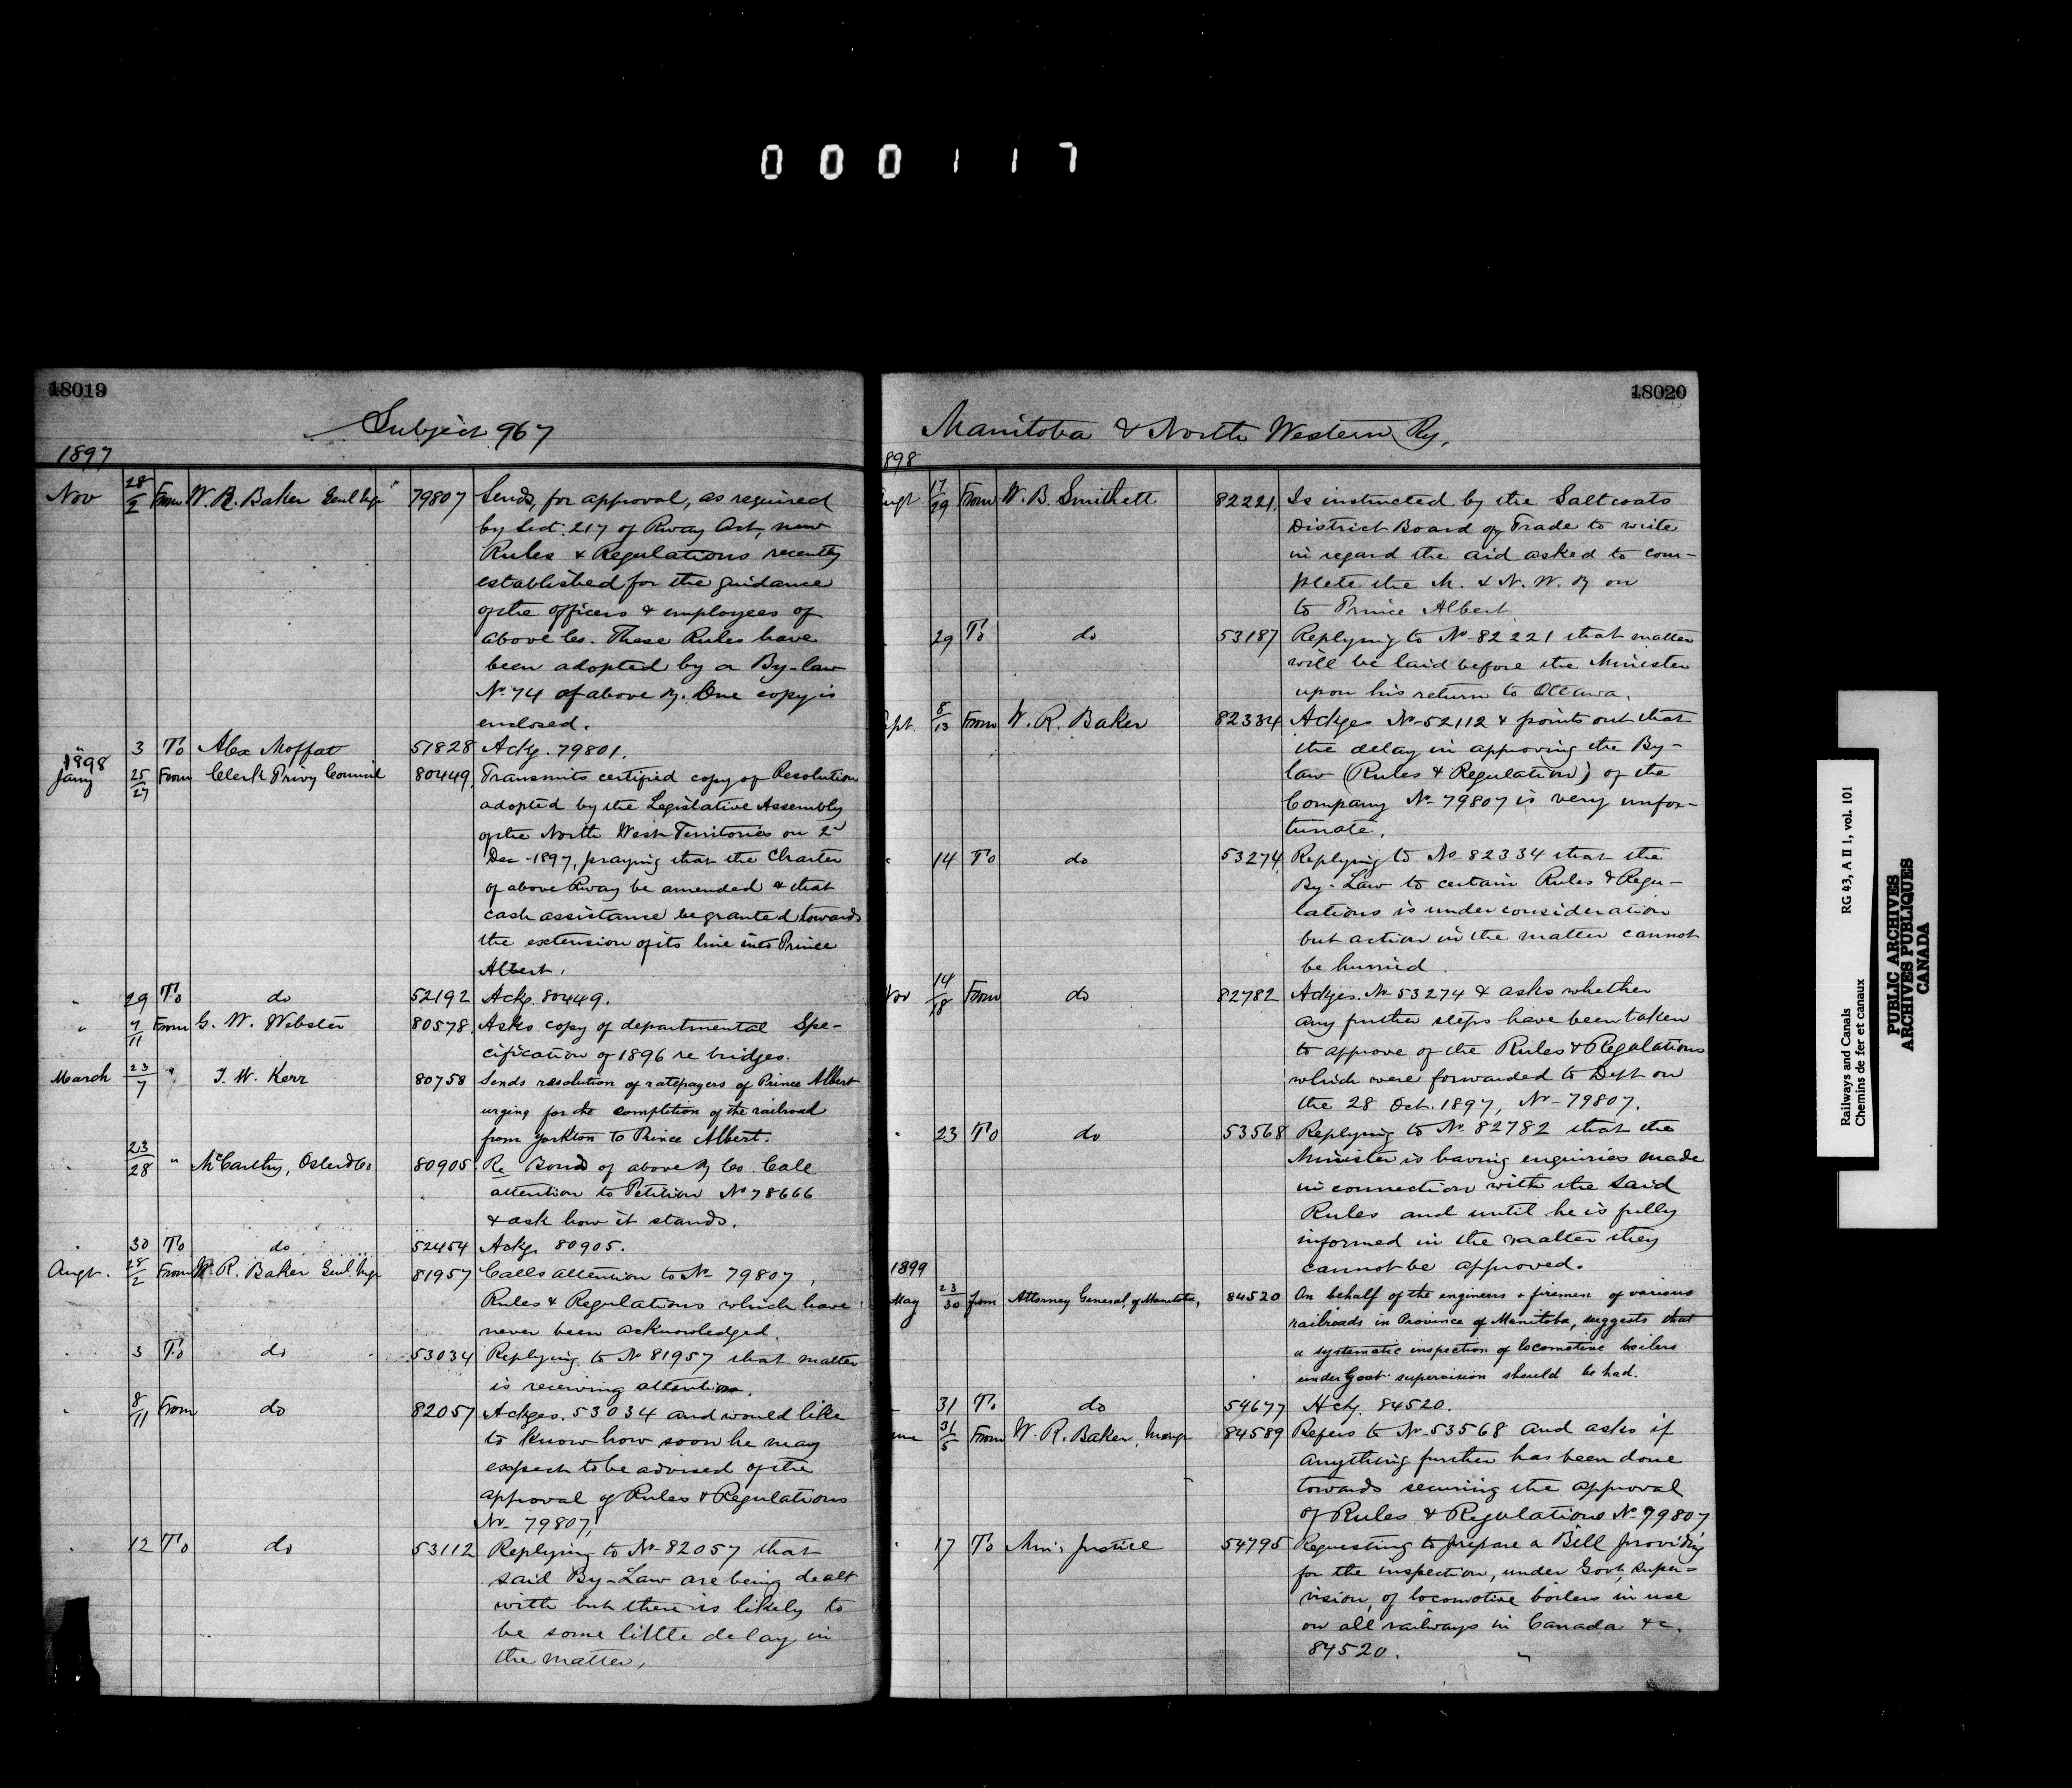 000117
18019
Subject 967
1897
Nov 28/2 From W. R. Baker Genl Mgr 79807 Sends, for approval, as required
by Sect. 217 of Rway Act, new
Rules & Regulations recently
established for the guidance
of the officers & employees of
above Co. These Rules have
been adopted by a By-law
No 74 of above Ry. One copy is
enclosed.
" 3 To Alex Moffat 51828 Ackg. 79801.
1898
Jany 25/27 From Clerk Privy Council 80449. Transmits certified copy of Resolution
adopted by the Legislative Assembly
of the North West Territories on 2d
Dec - 1897, praying that the Charter
of above Rway be amended & that
cash assistance be granted towards
the extension of its line into Prince
Albert.
" 29 To do 52192 Ackg. 80449.
" 9/11 From G. W. Webster 80578. Asks copy of departmental Spe-
cification of 1896 re bridges.
March 23/7 " J. W. Kerr 80758 Sends resolution of ratepayers of Prince Albert
urging for the completion of the railroad
from Yorkton to Prince Albert.
" 23/28 " McCarthy, Osler & Co 80905 Re Bonds of above Ry Co. Call
attention to Petition No 78666
& ask how it stands.
" 30 To do 52454 Ackg. 80905.
Augt. 28/2 From W. R. Baker Genl. Mgr 81957 Calls attention to No 79807,
Rules & Regulations which have
never been acknowledged.
" 3 To do 53034 Replying to No 81957 that matter
is receiving attention.
" 8/11 From do 82057 Ackges. 53034 and would like
to know how soon he may
expect to be advised of the
approval of Rules & Regulations
No- 79807.
" 12 To do 53112 Replying to No- 82057 that
said By-Law are being dealt
with but there is likely to
be some little delay in
the matter.
18020
Manitoba & North Western Ry.
898
ugt 17/29 From W. B. Smithett 82221. Is instructed by the Saltcoats
District Board of Trade to write
in regard the aid asked to com-
plete the M. & N. W. Ry on
to Prince Albert
29 To do 53187 Replying to No- 82221 that matter
will be laid before the Minister
upon his return to Ottawa.
ept 8/13 From W. R. Baker 82334 Ackges No- 52112 & points out that
the delay in approving the By-
law (Rules & Regulation) of the
Company No- 79807 is very unfor-
tunate.
" 14 To do 53274. Replying to No 82334 that the
By-Law to certain Rules & Regu-
lations is under consideration
but action in the matter cannot
be hurried.
Nov 14/18 From do 82782 Ackges. No- 53274 & asks whether
any further steps have been taken
to approve of the Rules & Regulations
which were forwarded to Dept on
the 28 Oct. 1897, No- 79807.
" 23 To do 53568 Replying to No- 82782 that the
Minister is having enquiries made
in connection with the said
Rules and until he is fully
informed in the matter they
cannot be approved.
1899
May 23/30 from Attorney General, of Manitoba, 84520 On behalf of the engineers & firemen of various
railroads in Province of Manitoba, suggests that
a systematic inspection of locomotive boilers
under Govt supervision should be had.
31 To do 54677 Ackg. 84520.
une 31/5 From W. R. Baker, Mangr 84589 Refers to No- 53568 and asks if
anything further has been done
towards securing the approval
of Rules & Regulations No 79807
" 17 To Min: Justice 54795 Requesting to prepare a Bill providing
for the inspection, under Govt. super-
vision, of locomotive boilers in use
on all railways in Canada &c.
84520.
Railways and Canals RG 43, A II 1, vol. 101
Chemins de fer et canaux
PUBLIC ARCHIVES
ARCHIVES PUBLIQUES
CANADA